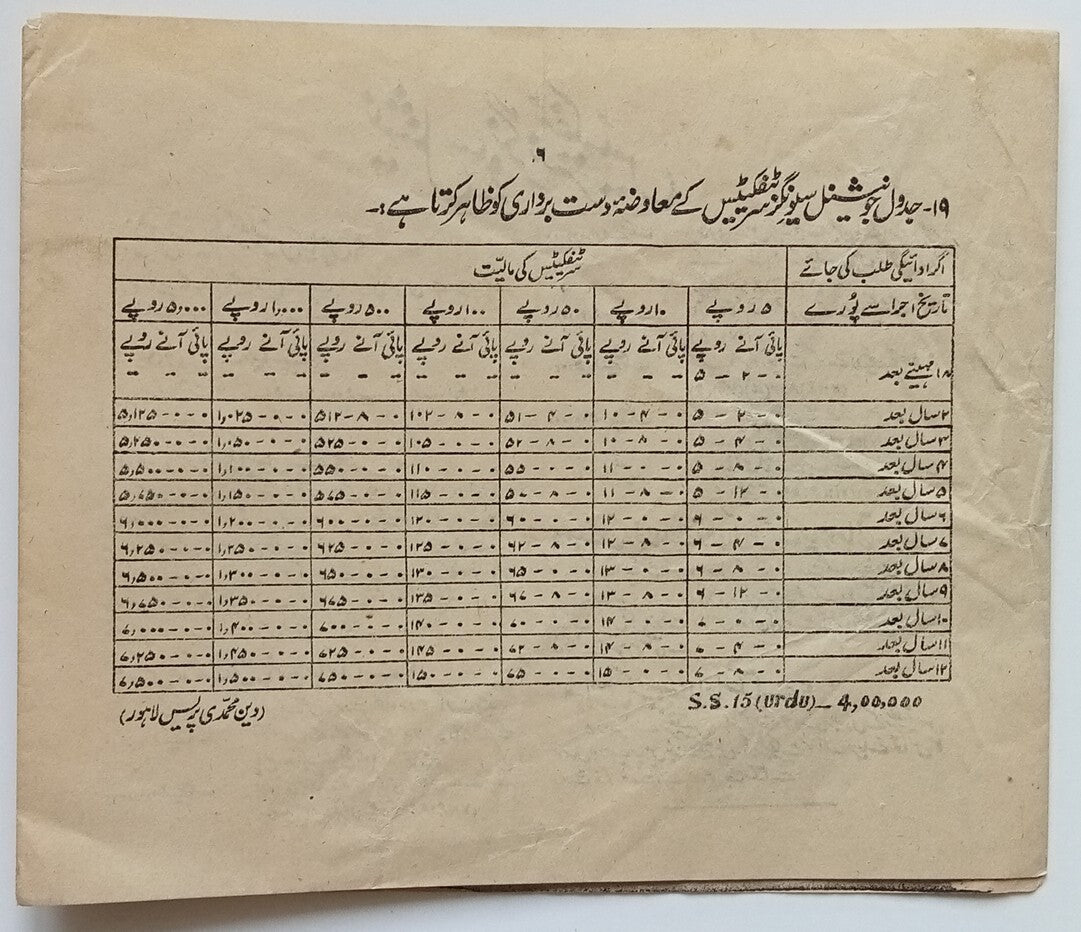 ۶
۱۹- جدول جو نیشنل سیونگز سرٹیفکیٹس کے معاوضۂ دست برداری کو ظاہر کرتا ہے:-
اگر ادائیگی طلب کی جائے سرٹیفکیٹس کی مالیّت
تاریخ اجرا سے پُورے ۵ روپے ۱۰ روپے ۵۰ روپے ۱۰۰ روپے ۵۰۰ روپے ۱,۰۰۰ روپے ۵,۰۰۰ روپے
پائی آنے روپے پائی آنے روپے پائی آنے روپے پائی آنے روپے پائی آنے روپے پائی آنے روپے پائی آنے روپے
۱۸ مہینے بعد ۵-۲-۰ - - - - - - - - - - - - - - - - - -
۲ سال بعد ۵-۲-۰ ۱۰-۴-۰ ۵۱-۴-۰ ۱۰۲-۸-۰ ۵۱۲-۸-۰ ۱,۰۲۵-۰-۰ ۵,۱۲۵-۰-۰
۳ سال بعد ۵-۴-۰ ۱۰-۸-۰ ۵۲-۸-۰ ۱۰۵-۰-۰ ۵۲۵-۰-۰ ۱,۰۵۰-۰-۰ ۵,۲۵۰-۰-۰
۴ سال بعد ۵-۸-۰ ۱۱-۰-۰ ۵۵-۰-۰ ۱۱۰-۰-۰ ۵۵۰-۰-۰ ۱,۱۰۰-۰-۰ ۵,۵۰۰-۰-۰
۵ سال بعد ۵-۱۲-۰ ۱۱-۸-۰ ۵۷-۸-۰ ۱۱۵-۰-۰ ۵۷۵-۰-۰ ۱,۱۵۰-۰-۰ ۵,۷۵۰-۰-۰
۶ سال بعد ۶-۰-۰ ۱۲-۰-۰ ۶۰-۰-۰ ۱۲۰-۰-۰ ۶۰۰-۰-۰ ۱,۲۰۰-۰-۰ ۶,۰۰۰-۰-۰
۷ سال بعد ۶-۴-۰ ۱۲-۸-۰ ۶۲-۸-۰ ۱۲۵-۰-۰ ۶۲۵-۰-۰ ۱,۲۵۰-۰-۰ ۶,۲۵۰-۰-۰
۸ سال بعد ۶-۸-۰ ۱۳-۰-۰ ۶۵-۰-۰ ۱۳۰-۰-۰ ۶۵۰-۰-۰ ۱,۳۰۰-۰-۰ ۶,۵۰۰-۰-۰
۹ سال بعد ۶-۱۲-۰ ۱۳-۸-۰ ۶۷-۸-۰ ۱۳۵-۰-۰ ۶۷۵-۰-۰ ۱,۳۵۰-۰-۰ ۶,۷۵۰-۰-۰
۱۰ سال بعد ۷-۰-۰ ۱۴-۰-۰ ۷۰-۰-۰ ۱۴۰-۰-۰ ۷۰۰-۰-۰ ۱,۴۰۰-۰-۰ ۷,۰۰۰-۰-۰
۱۱ سال بعد ۷-۴-۰ ۱۴-۸-۰ ۷۲-۸-۰ ۱۴۵-۰-۰ ۷۲۵-۰-۰ ۱,۴۵۰-۰-۰ ۷,۲۵۰-۰-۰
۱۲ سال بعد ۷-۸-۰ ۱۵-۰-۰ ۷۵-۰-۰ ۱۵۰-۰-۰ ۷۵۰-۰-۰ ۱,۵۰۰-۰-۰ ۷,۵۰۰-۰-۰
S.S.15 (urdu)_ 4,00,000
(دین محمّدی پریس لاہور)